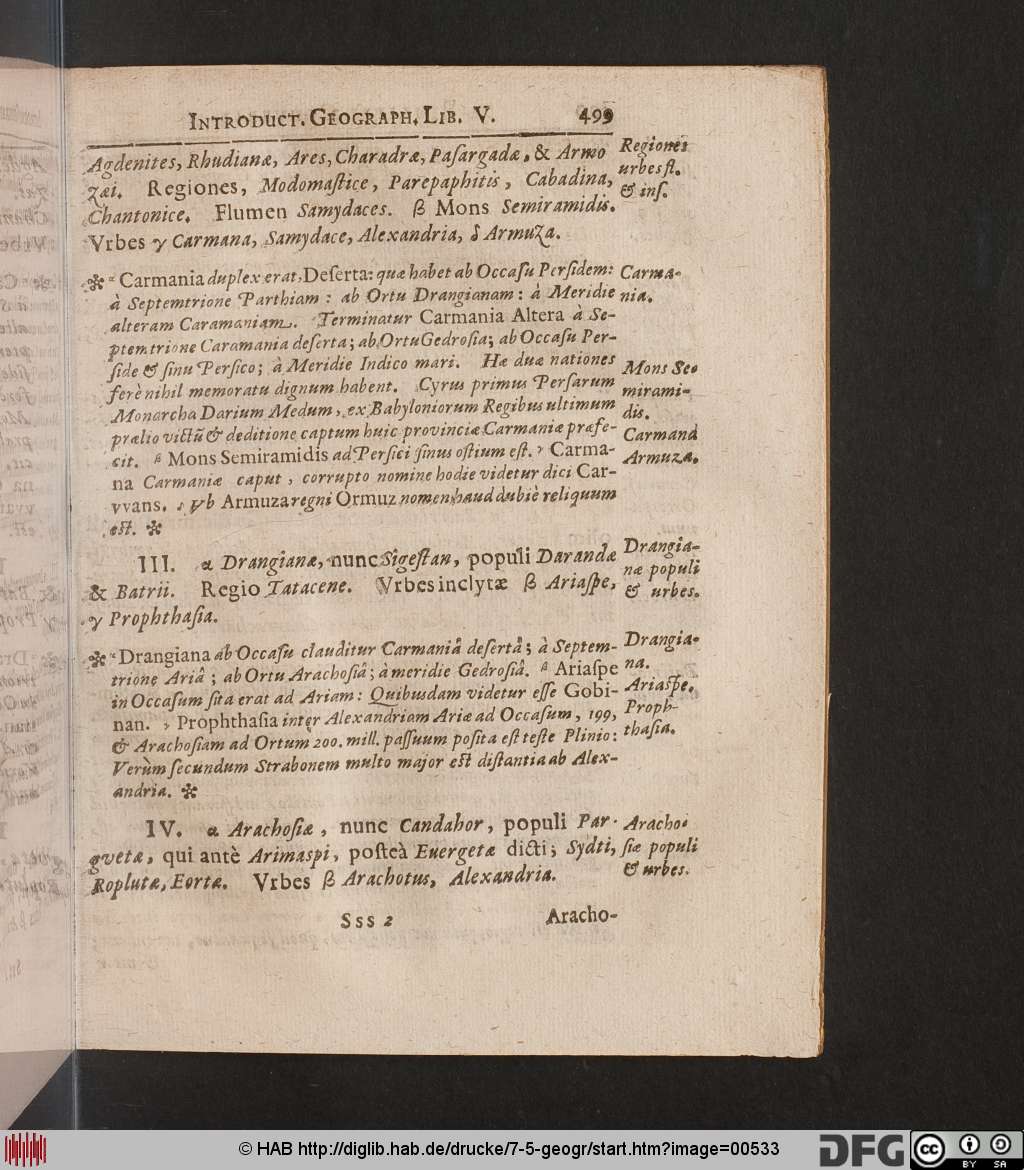 INTRODUCT. GEOGRAPH. LIB. V. 499
Agdenites, Rhudianæ, Ares, Charadræ, Paſargadæ, & Armo
zæi. Regiones, Modomaſtice, Parepaphitis, Cabadina,
Chantonice. Flumen Samydaces. β Mons Semiramidis.
Vrbes γ Carmana, Samydace, Alexandria, δ Armuza.
Regiones
urbes fl.
& inſ.
✻ α Carmania duplex erat, Deſerta: quæ habet ab Occaſu Perſidem:
à Septemtrione Parthiam: ab Ortu Drangianam: à Meridie
alteram Caramaniam. Terminatur Carmania Altera à Se-
ptemtrione Caramania deſerta; ab Ortu Gedroſia; ab Occaſu Per-
ſide & ſinu Perſico; à Meridie Indico mari. Hæ duæ nationes
ferè nihil memoratu dignum habent. Cyrus primus Perſarum
Monarcha Darium Medum, ex Babyloniorum Regibus ultimum
prælio victũ & deditione captum huic provinciæ Carmaniæ præfe-
cit. β Mons Semiramidis ad Perſici ſinus oſtium eſt. γ Carma-
na Carmaniæ caput, corrupto nomine hodie videtur dici Car-
vvans. δ Ab Armuza regni Ormuz nomen haud dubiè reliquum
eſt. ✻
Carma-
nia.
Mons Se-
mirami-
dis.
Carmana
Armuza.
III. α Drangianæ, nunc Sigeſtan, populi Darandæ
& Batrii. Regio Tatacene. Vrbes inclytæ β Ariaſpe,
γ Prophthaſia.
Drangia-
næ populi
& urbes.
✻ α Drangiana ab Occaſu clauditur Carmaniâ deſertâ; à Septem-
trione Ariâ; ab Ortu Arachoſiâ; à meridie Gedroſiâ. β Ariaſpe
in Occaſum ſita erat ad Ariam: Quibusdam videtur eſſe Gobi-
nan. γ Prophthaſia inter Alexandriam Ariæ ad Occaſum, 199,
& Arachoſiam ad Ortum 200. mill. paſſuum poſita eſt teſte Plinio:
Verùm ſecundum Strabonem multo major eſt diſtantia ab Alex-
andria. ✻
Drangia-
na.
Ariaſpe.
Proph-
thaſia.
IV. α Arachoſiæ, nunc Candahor, populi Par-
guetæ, qui antè Arimaspi, poſteà Euergetæ dicti; Sydti,
Roplutæ, Eortæ. Vrbes β Arachotus, Alexandria.
Aracho-
ſiæ populi
& urbes.
Sss 2 Aracho-
© HAB http://diglib.hab.de/drucke/7-5-geogr/start.htm?image=00533
DFG cc BY SA